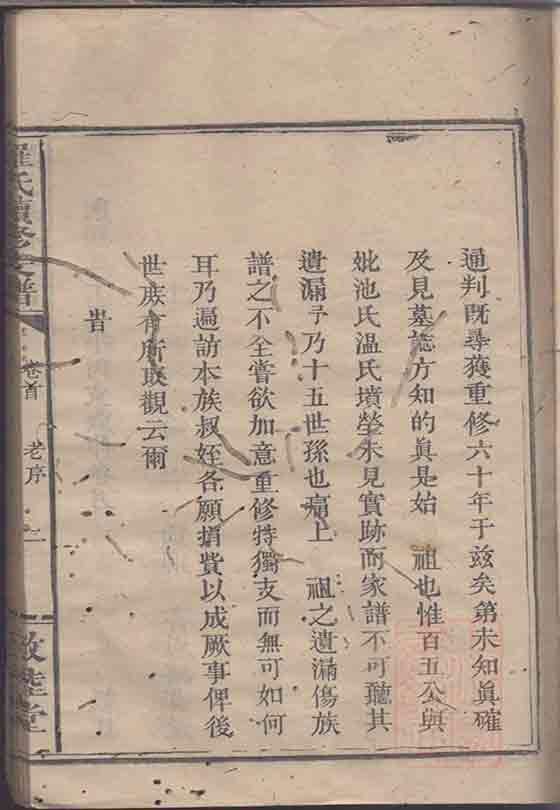 通判既尋獲重修六十年于兹矣第未知眞確
及見墓誌方知的眞是始 祖也惟百五公與
妣池氏温氏墳塋未見實跡而家譜不可聽其
遺漏予乃十五世孫也痛上 祖之遺漏傷族
譜之不全嘗欲加意重修特獨支而無可如何
耳乃遍訪本族叔姪各願捐費以成厥事俾後
世族有所取觀云爾
旹
羅氏續修支譜
卷首
老序
一
敦睦堂